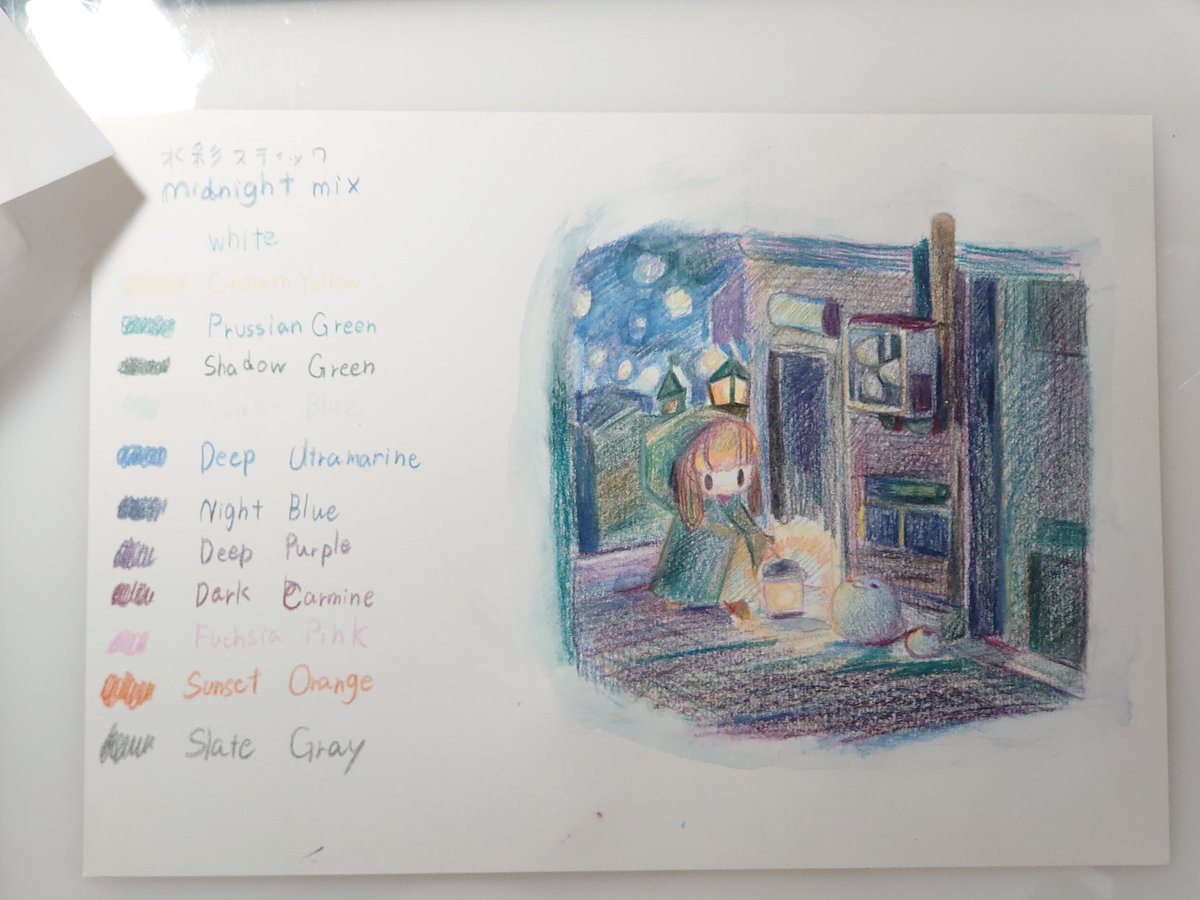 水彩スティック
midnight mix
white
Cream Yellow
Prussian Green
Shadow Green
Blue
Deep Utramarine
Night Blue
Deep Purple
Dark Carmine
Fuchsia Pink
Sunset Orange
Slate Gray